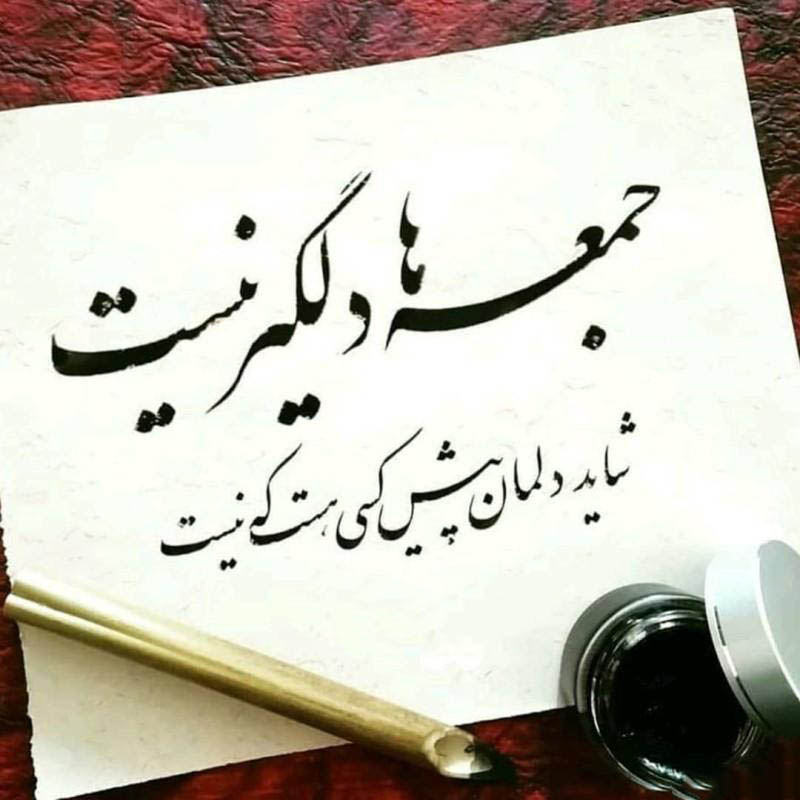 جمعه ها دلگیر نیست
شاید دلمان پیش کسی هست که نیست